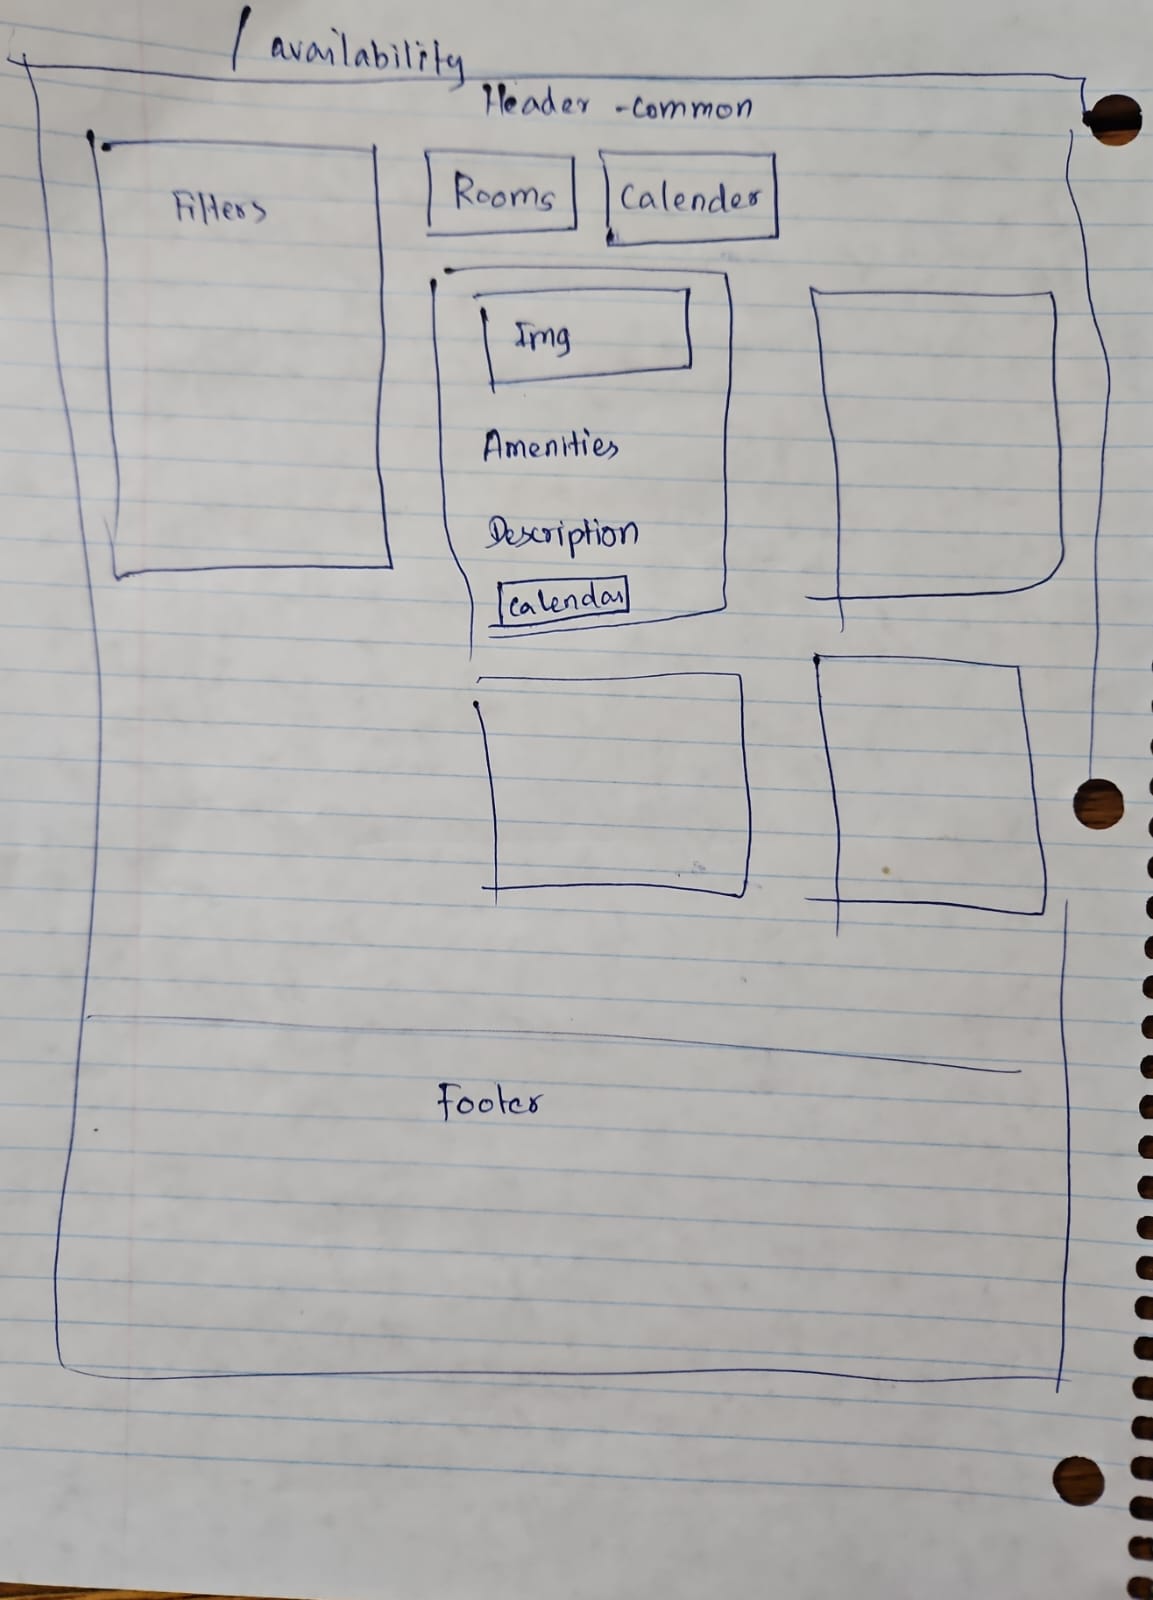 / availability
Header - common
Filters
Rooms
Calender
Img
Amenities
Description
Calendar
Footer